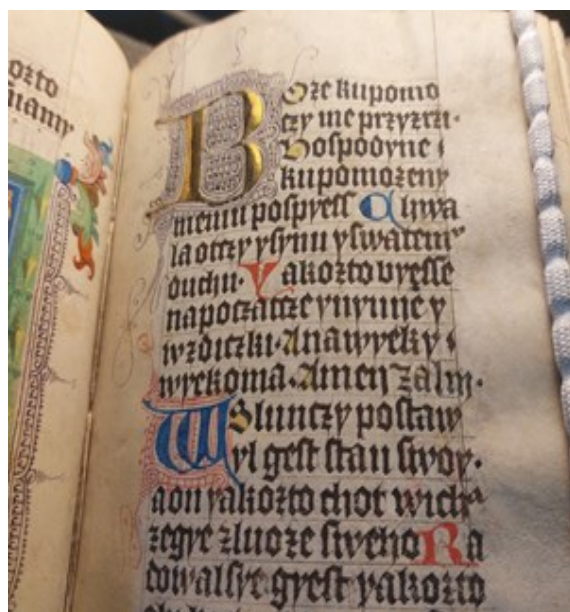 ozto
mamy
Boze kupomo
czy me przyzrzi·
hospodyne
kupomozeny
memu pospyess Chwa
la otczy ysynu yswatemu
duchu· Yakozto byesse
napoczatcze ynynye y
wzdiczki· Anawyeky
wyekoma· Amen zalm·
W Slunczy postaw
yl gest stan swoy·
aon yakozto chot wich
zegye zluoze sweho Ra
dowalsye gyest yakozto